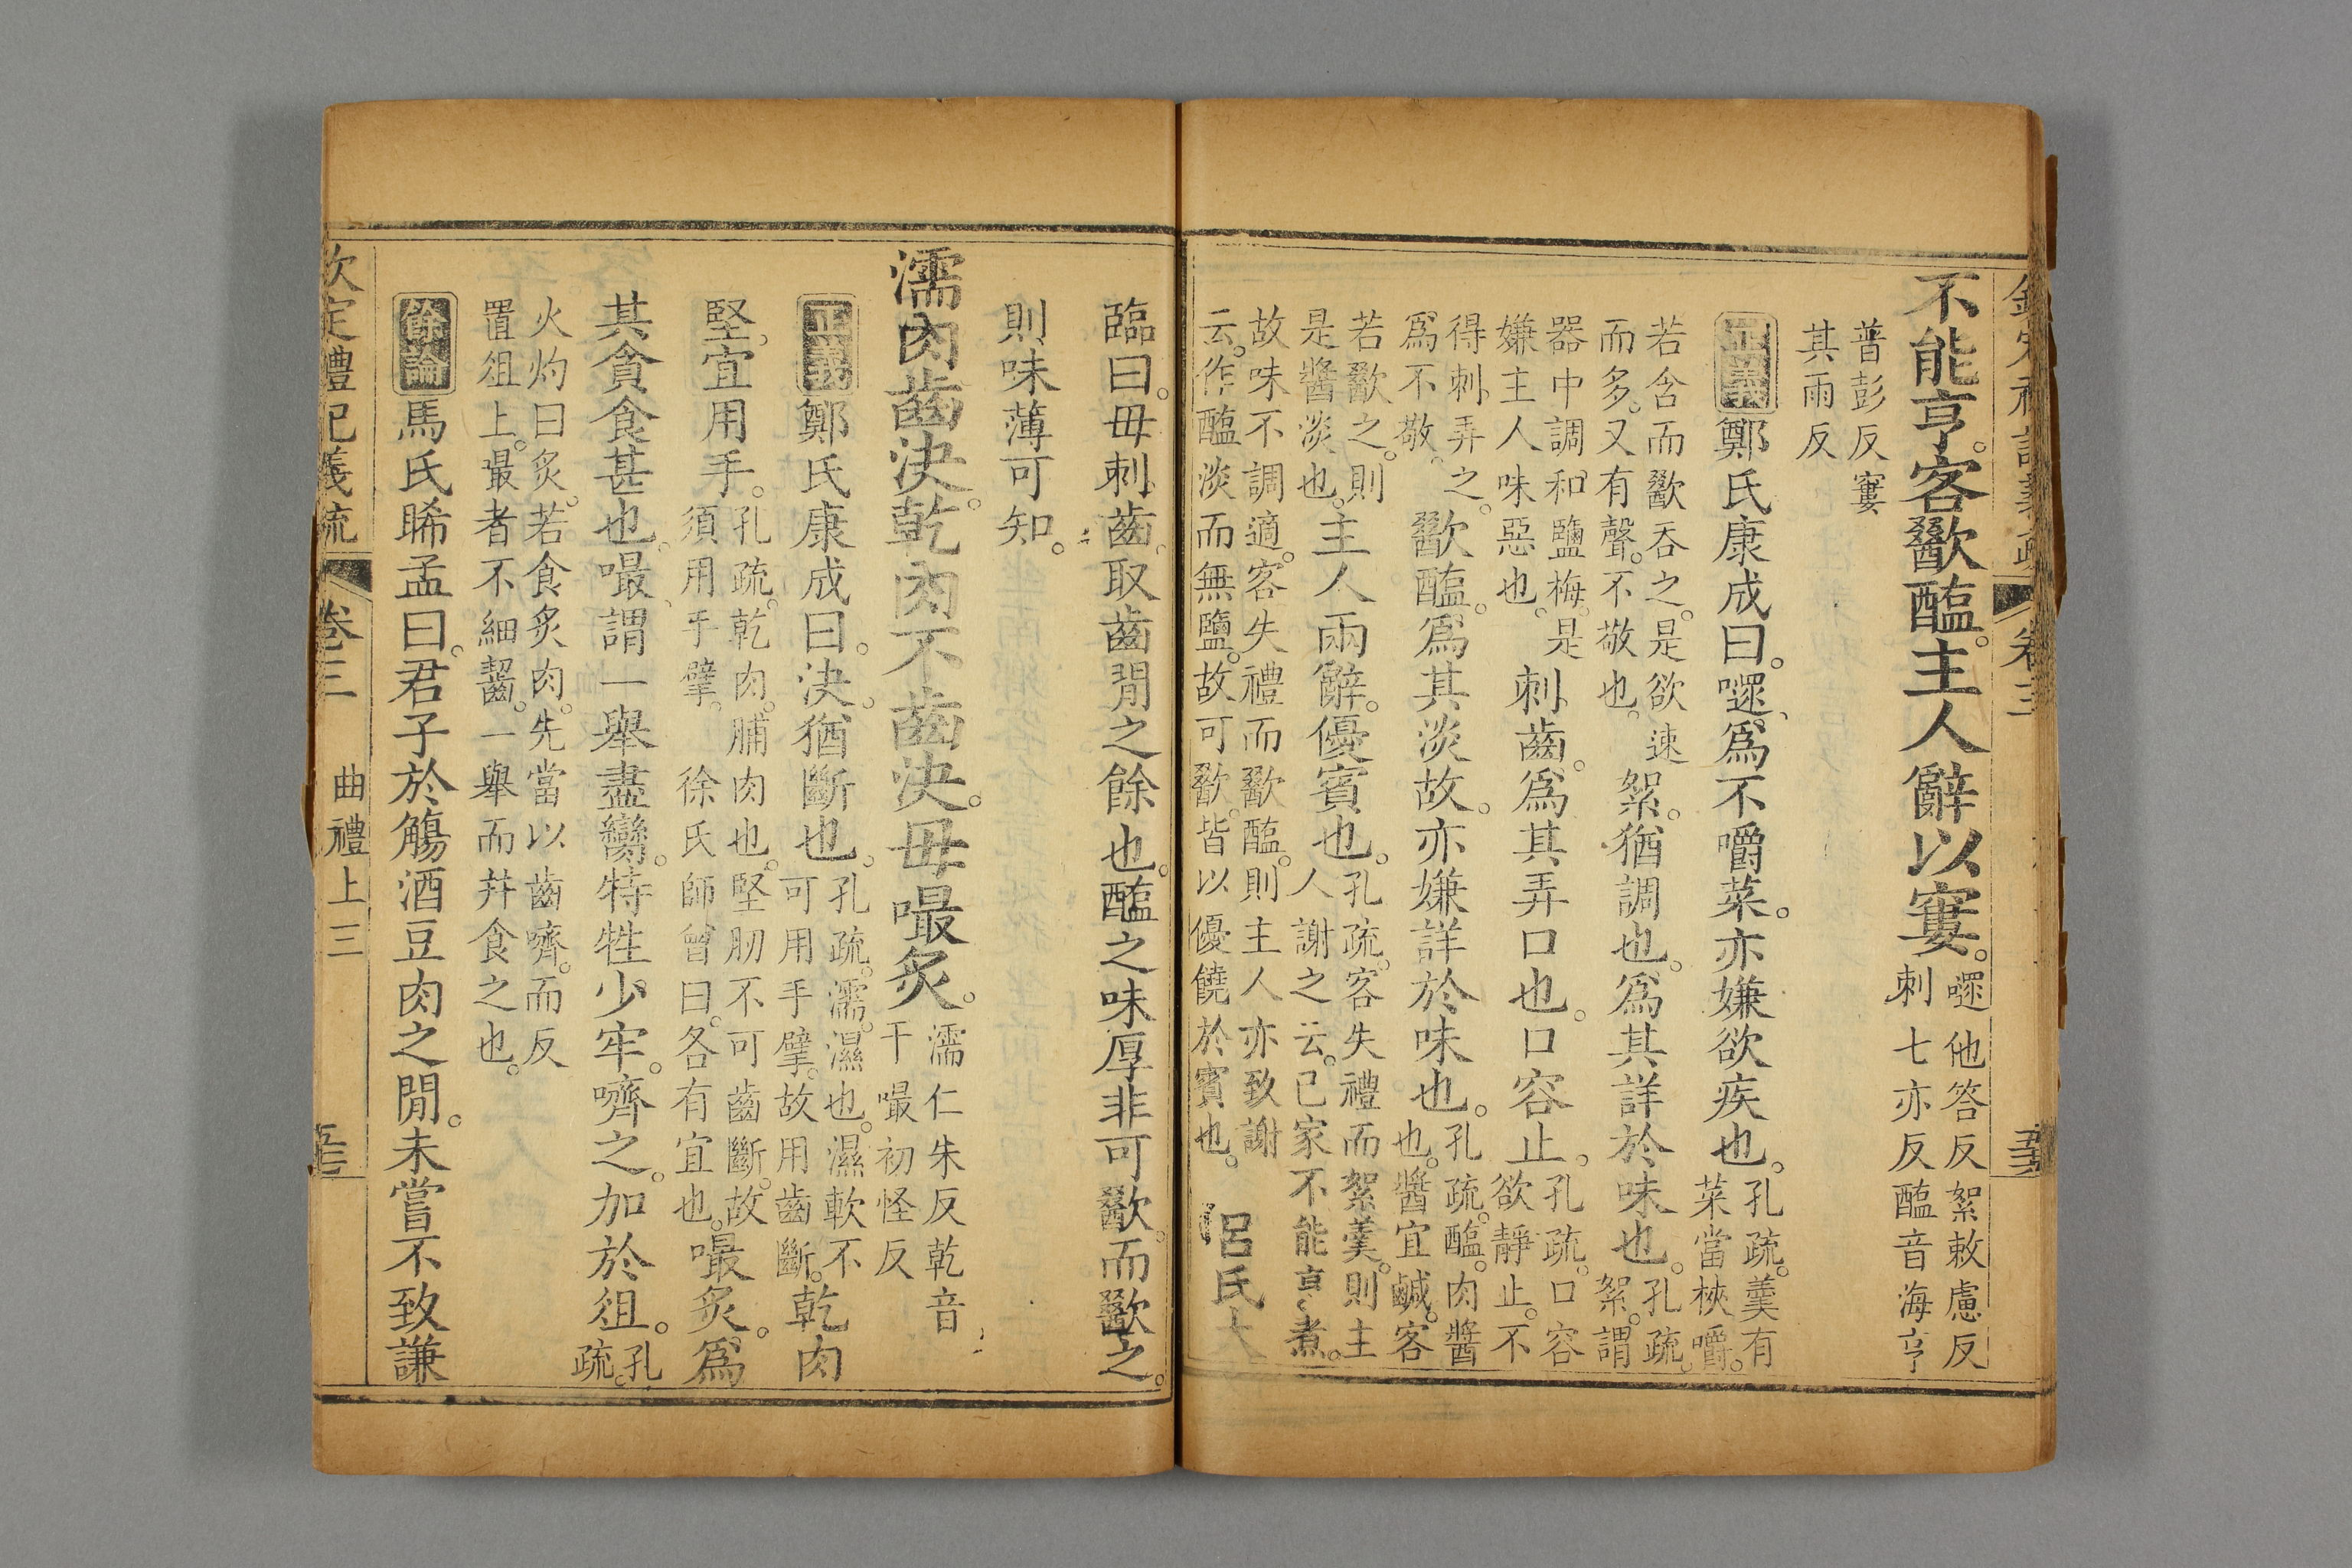 不能亨客歠醢主人辭以窶。嚃他答反絮敕慮反
刺七亦反醢音海亨
普彭反窶
其雨反
正義鄭氏康成曰。嚃、爲不嚼菜。亦嫌欲疾也。孔疏。羹有
菜當梜嚼。
若含而歠吞之。是欲速
而多。又有聲。不敬也。絮。猶調也。爲其詳於味也。孔疏。
絮。謂
器中調和鹽梅。是
嫌主人味惡也。刺齒。爲其弄口也。口容止。孔疏。口容
欲靜止。不
得刺弄之。
爲不敬。歠醢。爲其淡故。亦嫌詳於味也。孔疏。醢。肉醬
也。醬宜鹹。客
若歠之。則
是醬淡也。主人兩辭。優賓也。孔疏。客失禮而絮羹。則主
人謝之云。己家不能亨煮。
故味不調適。客失禮而歠醢。則主人亦致謝
云。作醢淡而無鹽。故可歠。皆以優饒於賓也。呂氏大
臨曰。毋刺齒。取齒閒之餘也。醢之味厚非可歠。而歠之。
則味薄可知。
濡肉齒決。乾肉不齒決。毋嘬炙。濡仁朱反乾音
干嘬初怪反
正義鄭氏康成曰。決。猶斷也。孔疏。濡。濕也。濕軟不
可用手擘。故用齒斷。乾肉
堅。宜用手。孔疏。乾肉。脯肉也。堅肕不可齒斷。故
須用手擘。徐氏師曾曰。各有宜也。嘬炙。爲
其貪食甚也。嘬、謂一舉盡臠。特牲少牢。嚌之。加於俎。孔
疏。
火灼曰炙。若食炙肉。先當以齒嚌。而反
置俎上。嘬者不細齧。一舉而幷食之也。
餘論馬氏睎孟曰。君子於觴酒豆肉之閒。未嘗不致謙
欽定禮記義疏 卷三 曲禮上三